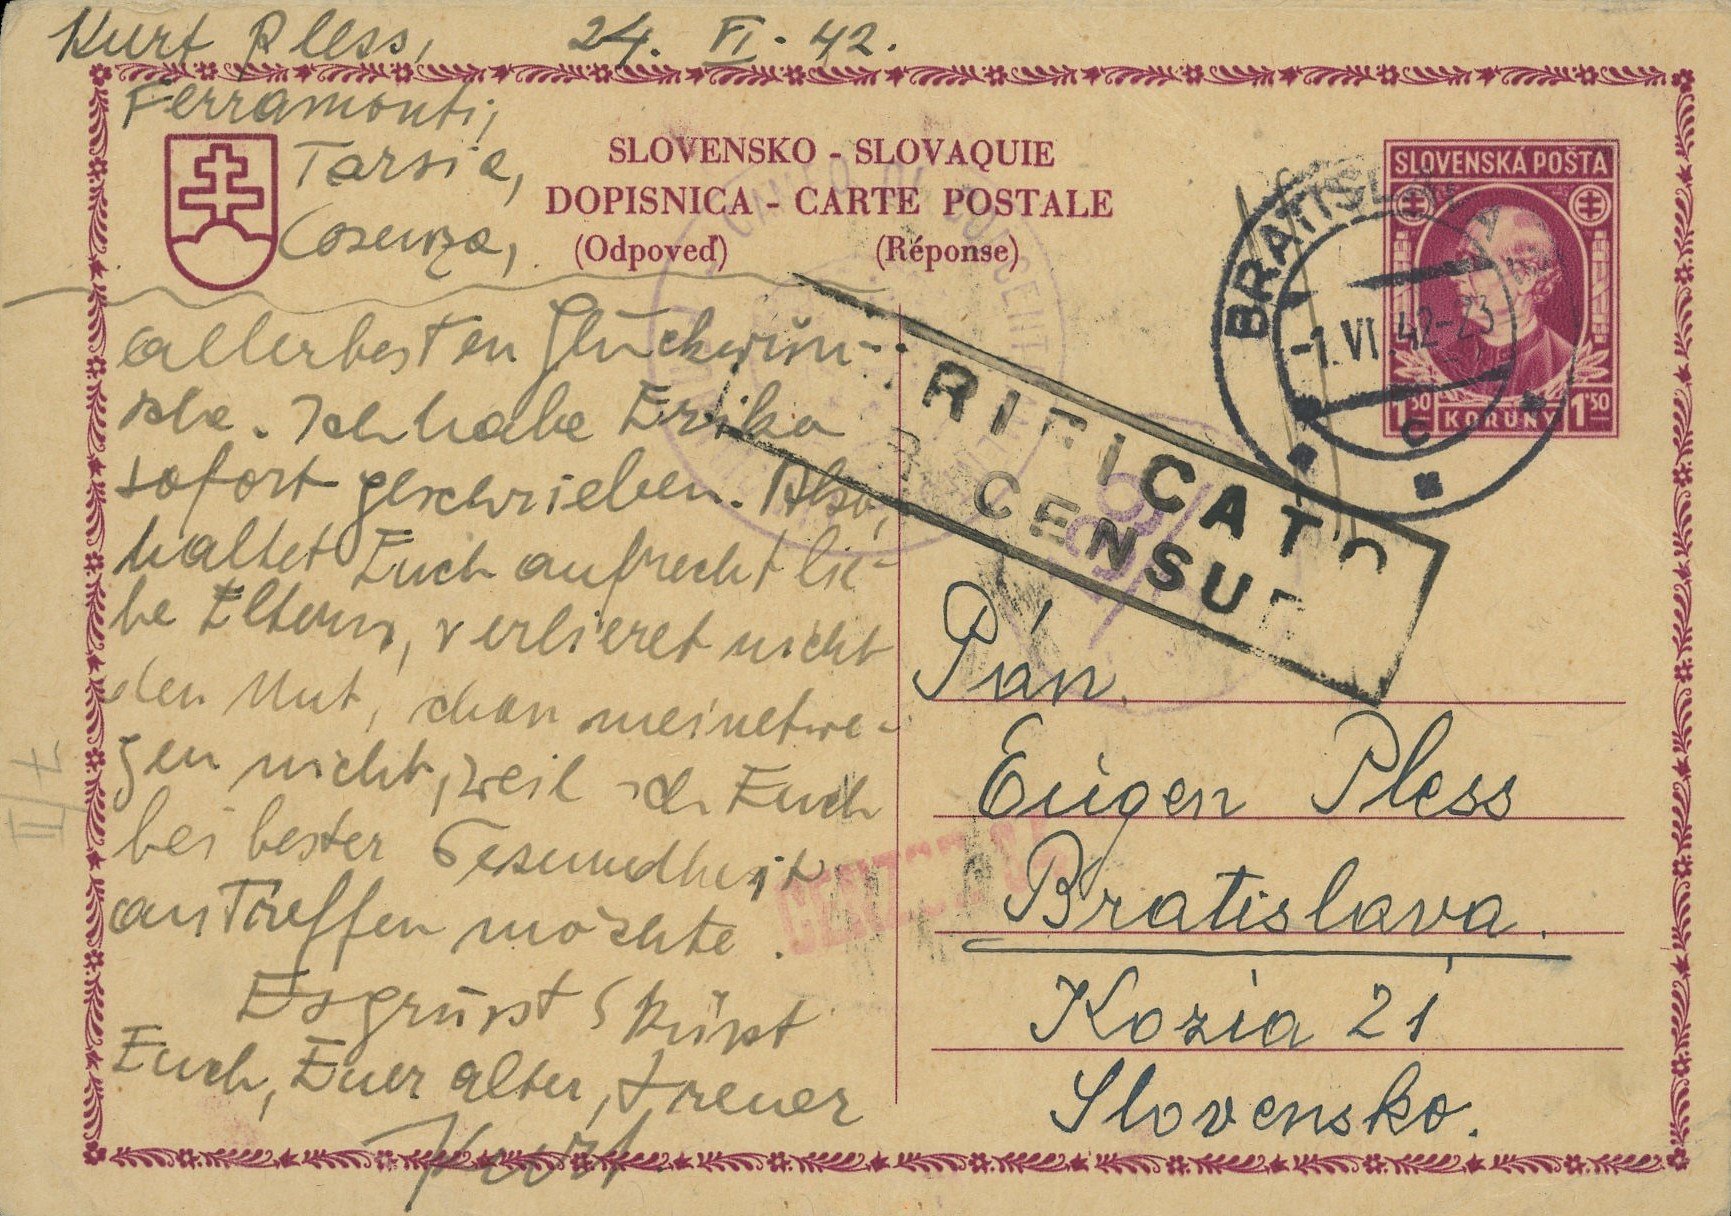 Kurt Pless, 24. VI. 42.
Ferramonti,
Tarsia,
Cosenza,
SLOVENSKO - SLOVAQUIE
DOPISNICA - CARTE POSTALE
(Odpoveď) (Réponse)
SLOVENSKÁ POŠTA
1.50 KORUNY 1.50
BRATISLAVA
-1.VI.42-23
c
allerbesten Glückwün-
sche. Ich habe Erika
sofort geschrieben. Also,
haltet Euch aufrecht lie-
be Eltern, verlieret nicht
den Mut, schon meinetwe-
gen nicht, weil ich Euch
bei bester Gesundheit
antreffen möchte.
Es grüsst & küsst
Euch, Euer alter, treuer
Kurt
RIFICATO
R CENSUR
Pán
Eugen Pless
Bratislava.
Kozia 21
Slovensko.
II/7